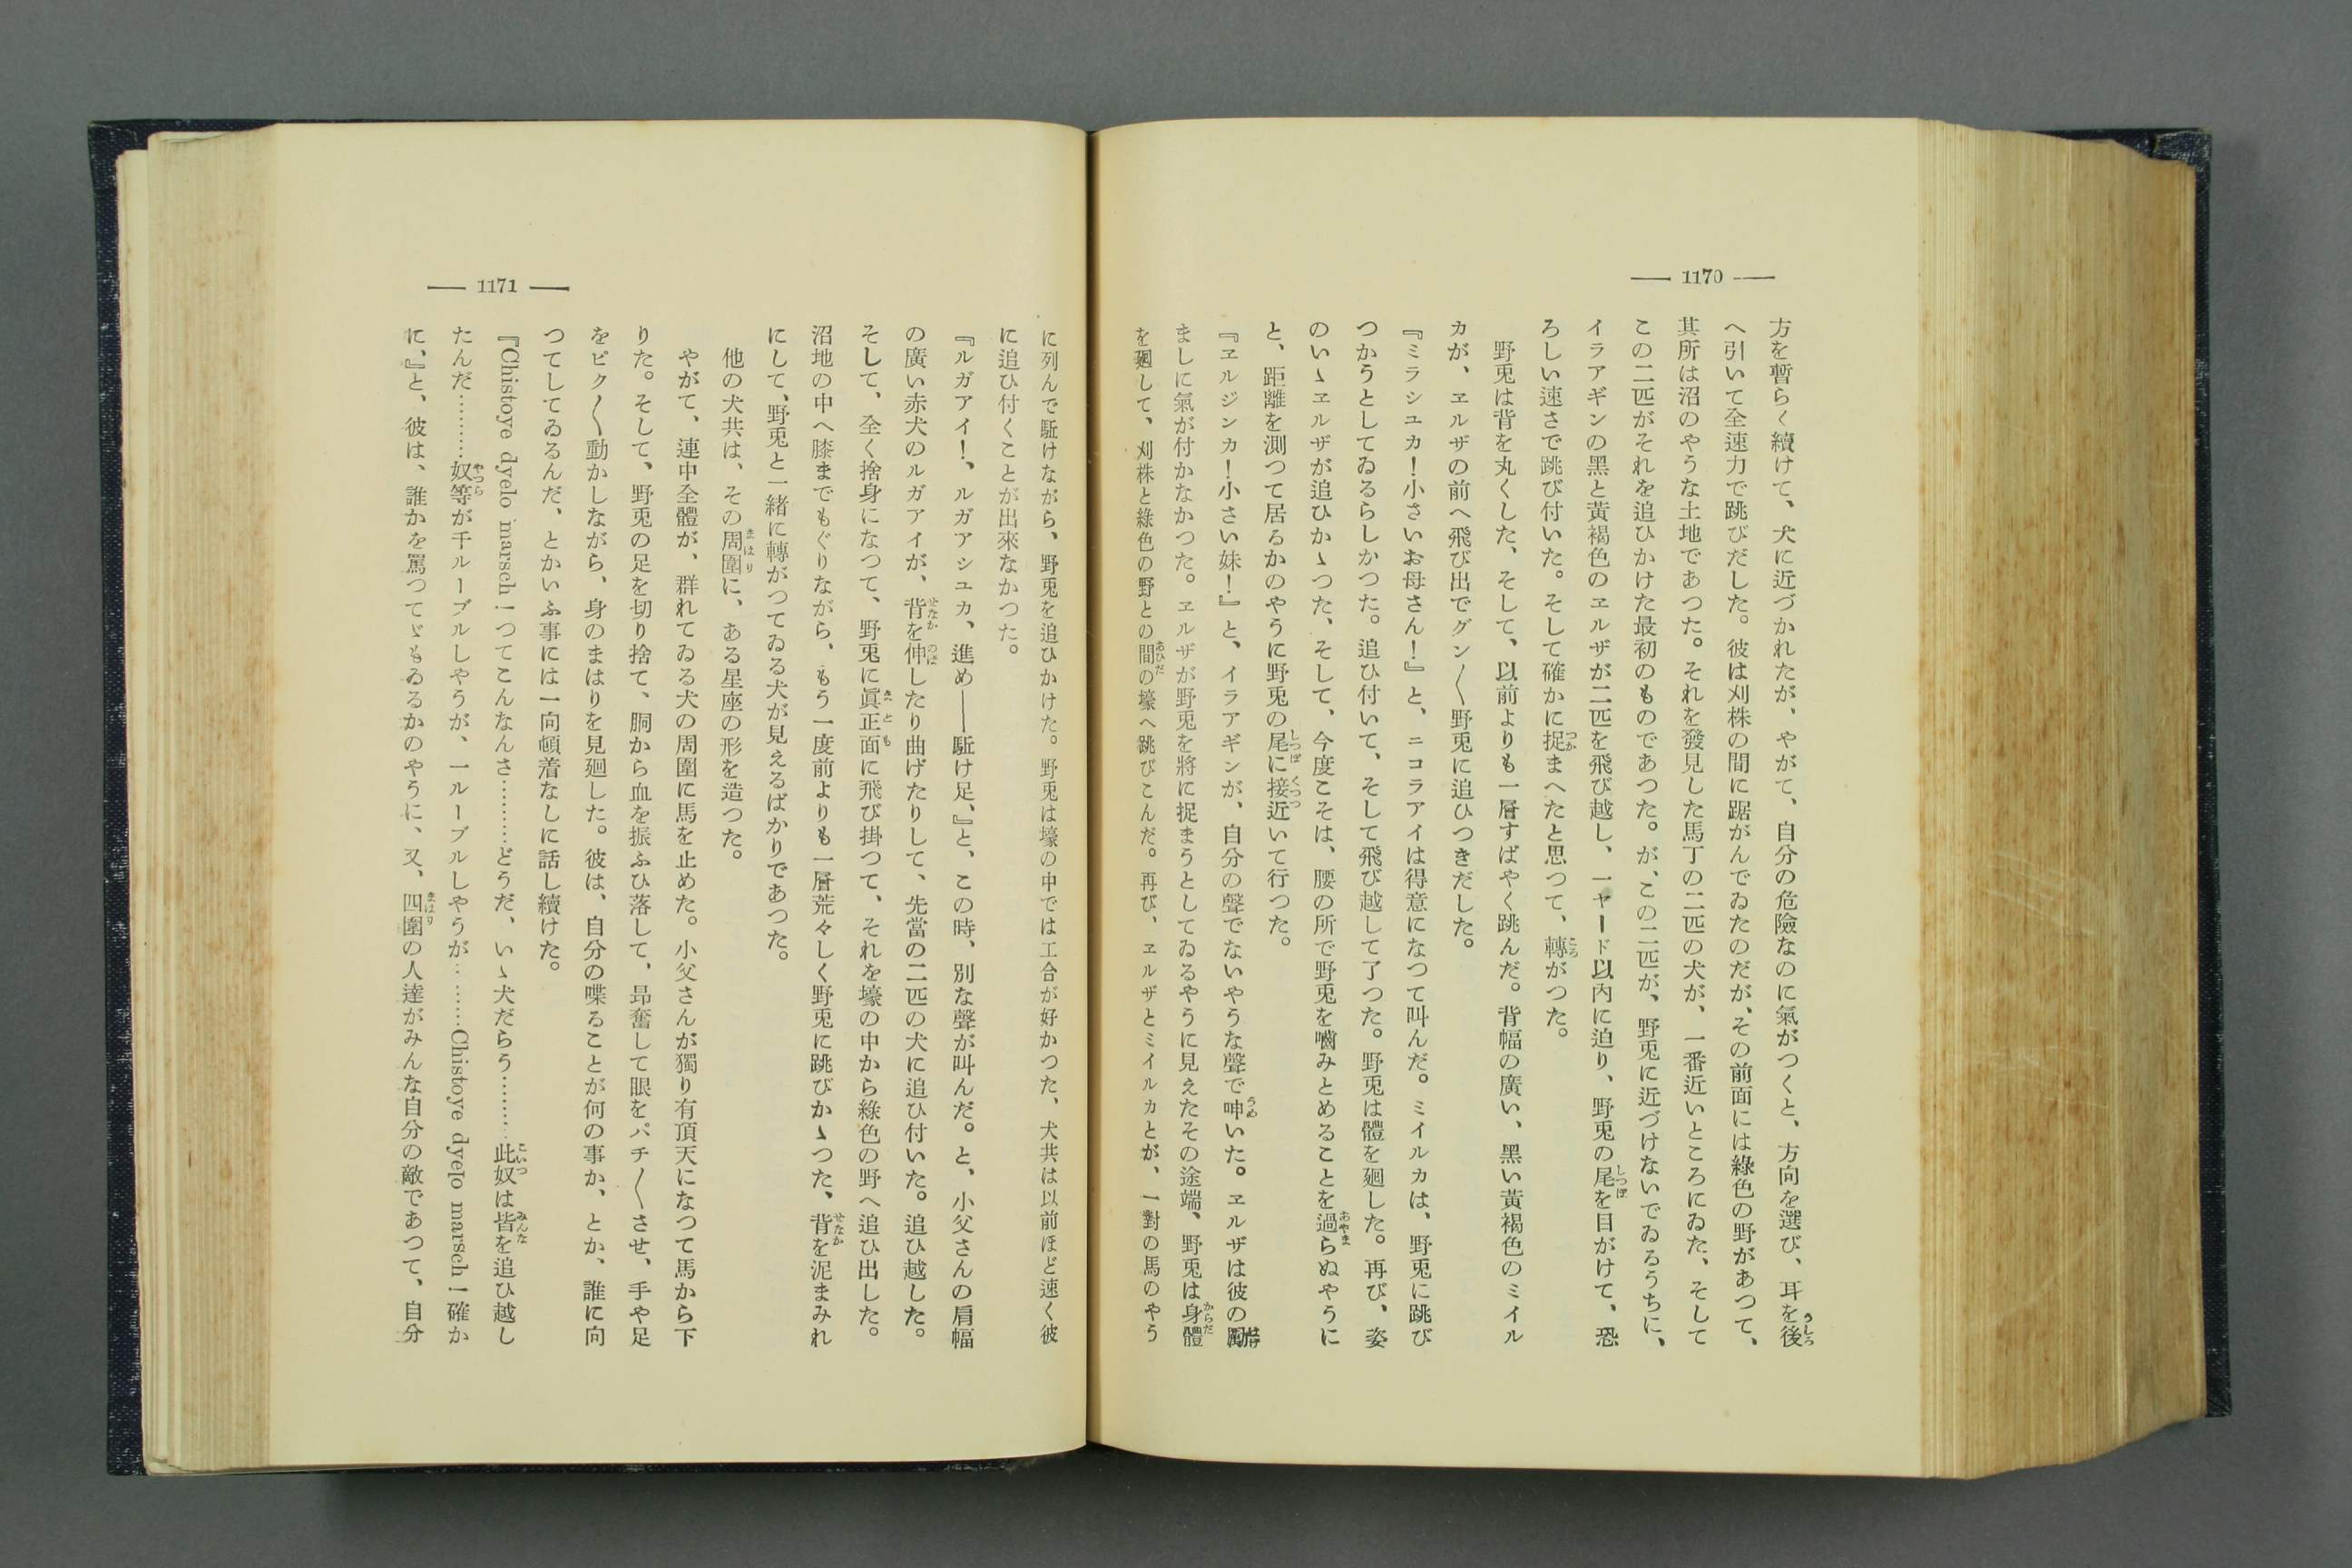 — 1170 —
方を暫らく續けて、犬に近づかれたが、やがて、自分の危險なのに氣がつくと、方向を選び、耳を後
へ引いて全速力で跳びだした。彼は刈株の間に踞がんでゐたのだが、その前面には綠色の野があつて、
其所は沼のやうな土地であつた。それを發見した馬丁の二匹の犬が、一番近いところにゐた、そして
この二匹がそれを追ひかけた最初のものであつた。が、この二匹が、野兎に近づけないでゐるうちに、
イラアギンの黑と黃褐色のヱルザが二匹を飛び越し、一ヤード以內に迫り、野兎の尾を目がけて、恐
ろしい速さで跳び付いた。そして確かに捉まへたと思つて、轉がつた。
野兎は背を丸くした、そして、以前よりも一層すばやく跳んだ。背幅の廣い、黑い黃褐色のミイル
カが、ヱルザの前へ飛び出でグン〱野兎に追ひつきだした。
『ミラシユカ！小さいお母さん！』と、ニコラアイは得意になつて叫んだ。ミイルカは、野兎に跳び
つかうとしてゐるらしかつた。追ひ付いて、そして飛び越して了つた。野兎は體を廻した。再び、姿
のいゝヱルザが追ひかゝつた、そして、今度こそは、腰の所で野兎を嚙みとめることを過らぬやうに
と、距離を測つて居るかのやうに野兎の尾に接近いて行つた。
『ヱルジンカ！小さい妹！』と、イラアギンが、自分の聲でないやうな聲で呻いた。ヱルザは彼の
ましに氣が付かなかつた。ヱルザが野兎を將に捉まうとしてゐるやうに見えたその途端、野兎は身體
を廻して、刈株と綠色の野との間の壕へ跳びこんだ。再び、ヱルザとミイルカとが、一對の馬のやう
— 1171 —
に列んで駈けながら、野兎を追ひかけた。野兎は壕の中では工合が好かつた、犬共は以前ほど速く彼
に追ひ付くことが出來なかつた。
『ルガアイ！、ルガアシユカ、進め——駈け足、』と、この時、別な聲が叫んだ。と、小父さんの肩幅
の廣い赤犬のルガアイが、背を伸したり曲げたりして、先當の二匹の犬に追ひ付いた。追ひ越した。
そして、全く捨身になつて、野兎に眞正面に飛び掛つて、それを壕の中から綠色の野へ追ひ出した。
沼地の中へ膝までもぐりながら、もう一度前よりも一層荒々しく野兎に跳びかゝつた、背を泥まみれ
にして、野兎と一緖に轉がつてゐる犬が見えるばかりであつた。
他の犬共は、その周圍に、ある星座の形を造つた。
やがて、連中全體が、群れてゐる犬の周圍に馬を止めた。小父さんが獨り有頂天になつて馬から下
りた。そして、野兎の足を切り捨て、胴から血を振ふひ落して、昂奮して眼をパチ〱させ、手や足
をピク〱動かしながら、身のまはりを見廻した。彼は、自分の喋ることが何の事か、とか、誰に向
つてしてゐるんだ、とかいふ事には一向頓着なしに話し續けた。
『Chistoye dyelo marsch！つてこんなんさ………どうだ、いゝ犬だらう………此奴は皆を追ひ越し
たんだ………奴等が千ルーブルしやうが、一ルーブルしやうが………Chistoye dyelo marsch！確か
に、』と、彼は、誰かを罵つてゞもゐるかのやうに、又、四圍の人達がみんな自分の敵であつて、自分